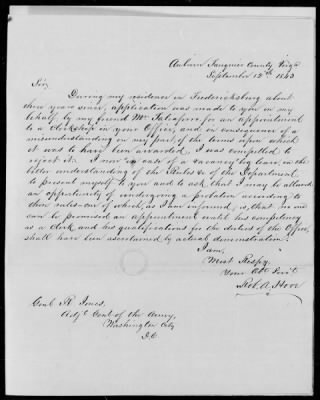 Auburn Fauquier County Virga
September 12th 1843
Sir,
During my residence in Fredericksburg about
three years since, application was made to you in my
behalf, by my friend Mr Taliaferro for an appointment
to a Clerkship in your Office, and in consequence of a
misunderstanding on my part of the terms upon which
it was to have been awarded, I was compelled to
reject it. I now in case of a vacancy beg leave, in the
better understanding of the Rules &c of the Department
to present myself to you and to ask that I may be allowed
an opportunity of undergoing a probation according to
them of which, as I am informed, is, that no one
can be promised an appointment until his competency
as a Clerk and his qualifications for the duties of the Office,
shall have been ascertained by actual demonstration.
I am,
Most Respy.
Your Obt Servt
Rob. A.
Genl R Jones,
Adjt Genl of the Army,
Washington City
D.C.